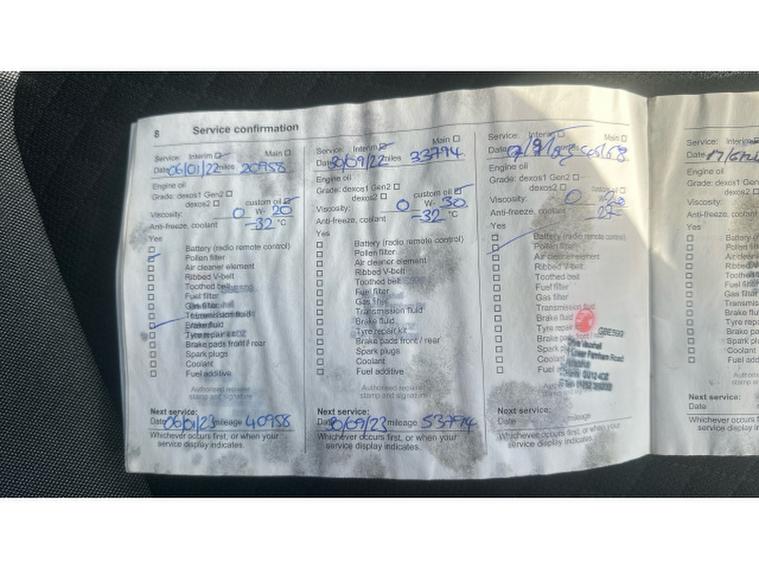 8 Service confirmation
Service: Interim Main
Date 06/01/22 miles 20958
Engine oil
Grade: dexos1 Gen2
dexos2 custom oil
Viscosity: 0 W- 20
Anti-freeze, coolant -32 °C
Yes
Battery (radio remote control)
Pollen filter
Air cleaner element
Ribbed V-belt
Toothed belt
Fuel filter
Gas filter
Transmission fluid
Brake fluid
Tyre repair kit
Brake pads front / rear
Spark plugs
Coolant
Fuel additive
Authorised repairer
stamp and signature
Next service:
Date 06/01/23 mileage 40958
Whichever occurs first, or when your
service display indicates.
Service: Interim Main
Date 30/09/22 miles 33794
Engine oil
Grade: dexos1 Gen2
dexos2 custom oil
Viscosity: 0 W- 30
Anti-freeze, coolant -32 °C
Yes
Battery (radio remote control)
Pollen filter
Air cleaner element
Ribbed V-belt
Toothed belt
Fuel filter
Gas filter
Transmission fluid
Brake fluid
Tyre repair kit
Brake pads front / rear
Spark plugs
Coolant
Fuel additive
Authorised repairer
stamp and signature
Next service:
Date 30/09/23 mileage 53794
Whichever occurs first, or when your
service display indicates.
Service: Interim Main
Date
Engine oil
Grade: dexos1 Gen2
dexos2
Viscosity: 0 W-
Anti-freeze, coolant
Yes
Battery (radio remote control)
Pollen filter
Air cleaner element
Ribbed V-belt
Toothed belt
Fuel filter
Gas filter
Transmission fluid
Brake fluid
Tyre repair
Brake pads front / rear
Spark
Coolant
Fuel additive
Vauxhall
Farnham Road
Next service:
Date mileage
Whichever occurs first, or when your
service display indicates.
Service: Interim
Date
Engine oil
Grade: dexos1
Viscosity:
Anti-freeze, coolant
Yes
Battery
Pollen
Air cle
Ribbed
Toothed
Fuel filt
Gas filt
Transm
Brake f
Tyre re
Brake p
Spark
Coolan
Fuel ad
Next service:
Date
Whichever occu
service display